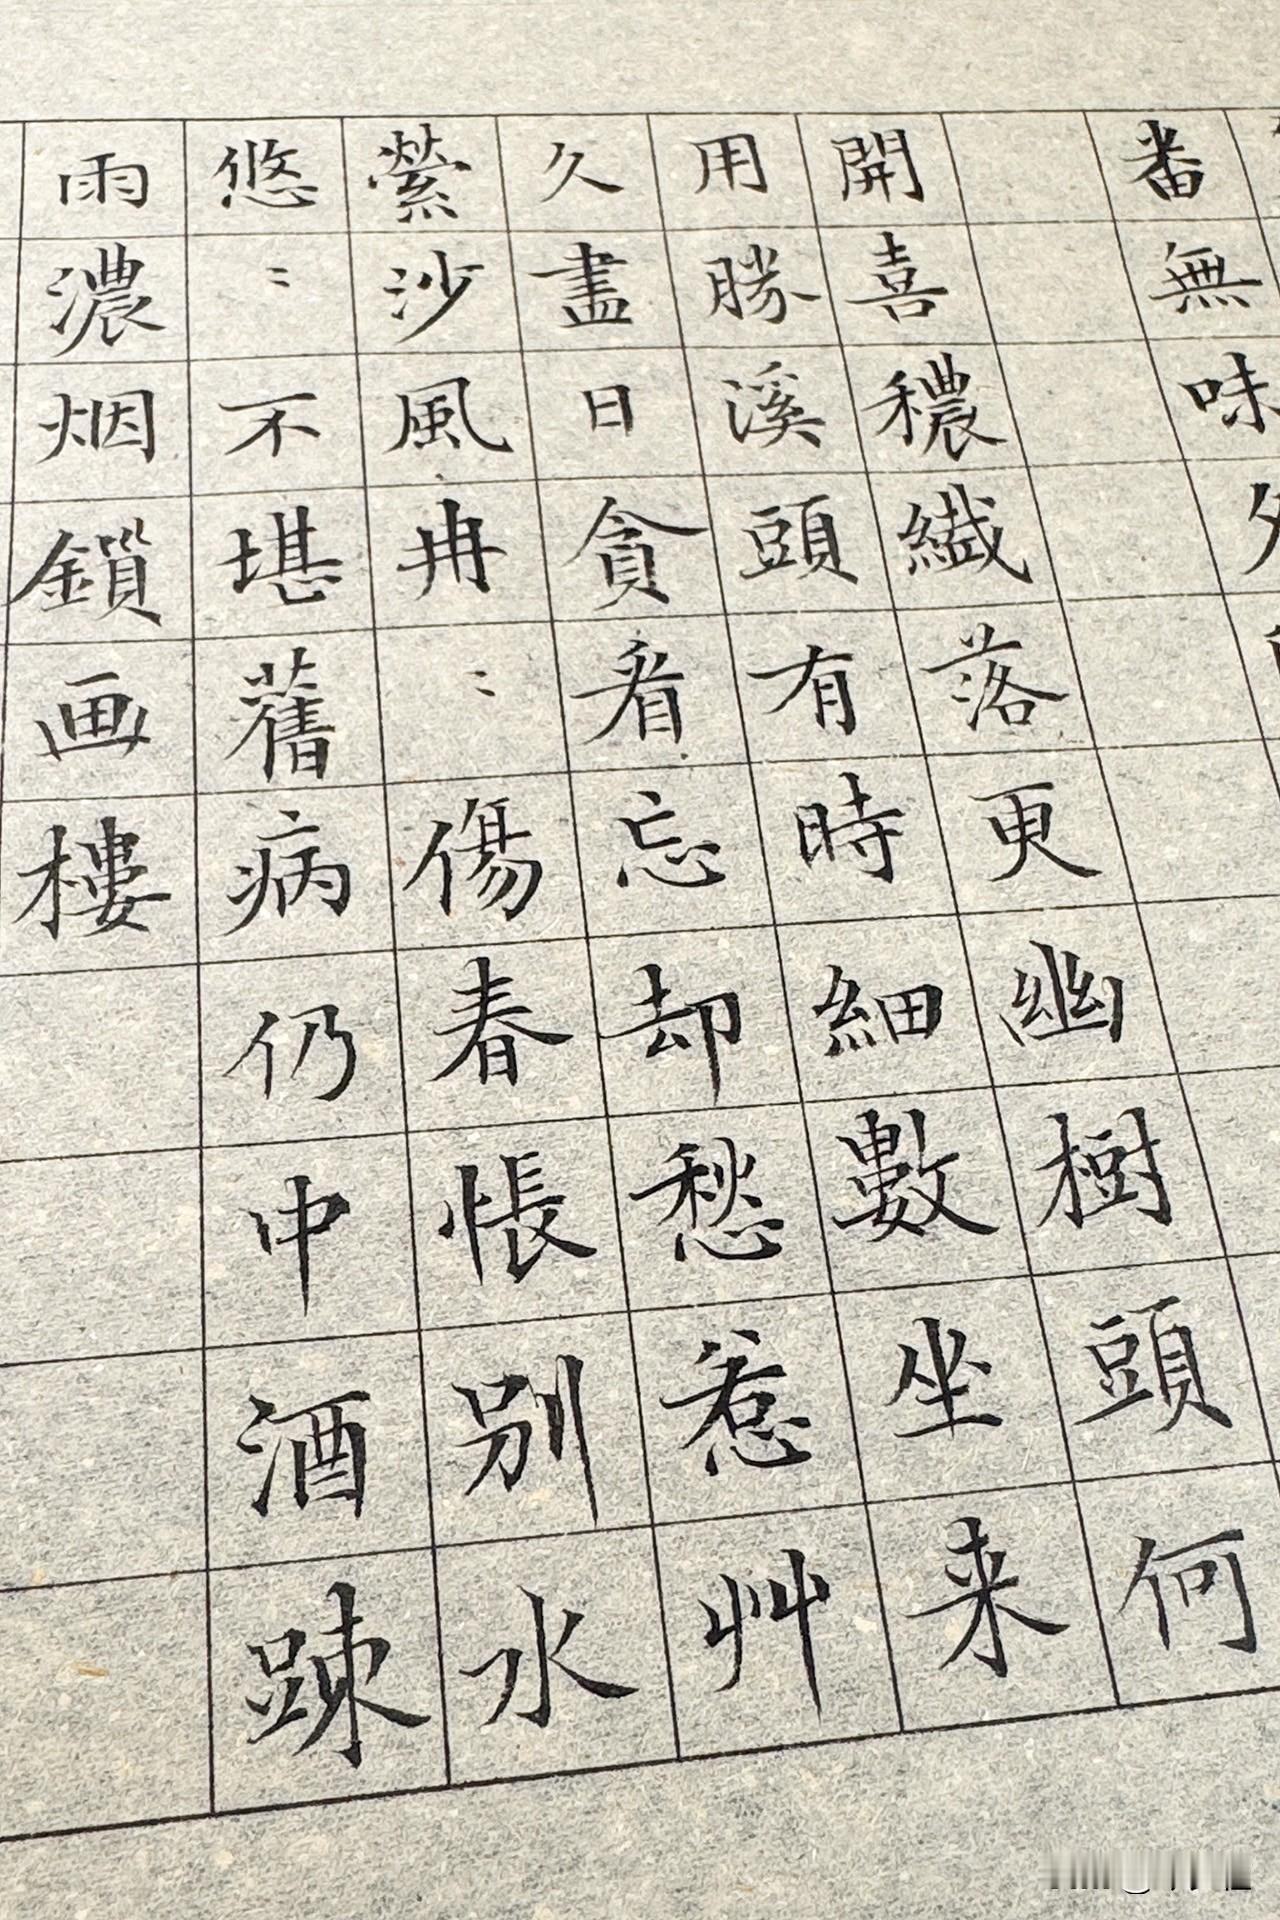 番無味
開喜穠繊落更幽樹頭何
用勝溪頭有時細數坐来
久盡日貪看忘却愁惹艸
縈沙風冉〻傷春悵別水
悠〻不堪舊病仍中酒踈
雨濃烟鎖画樓